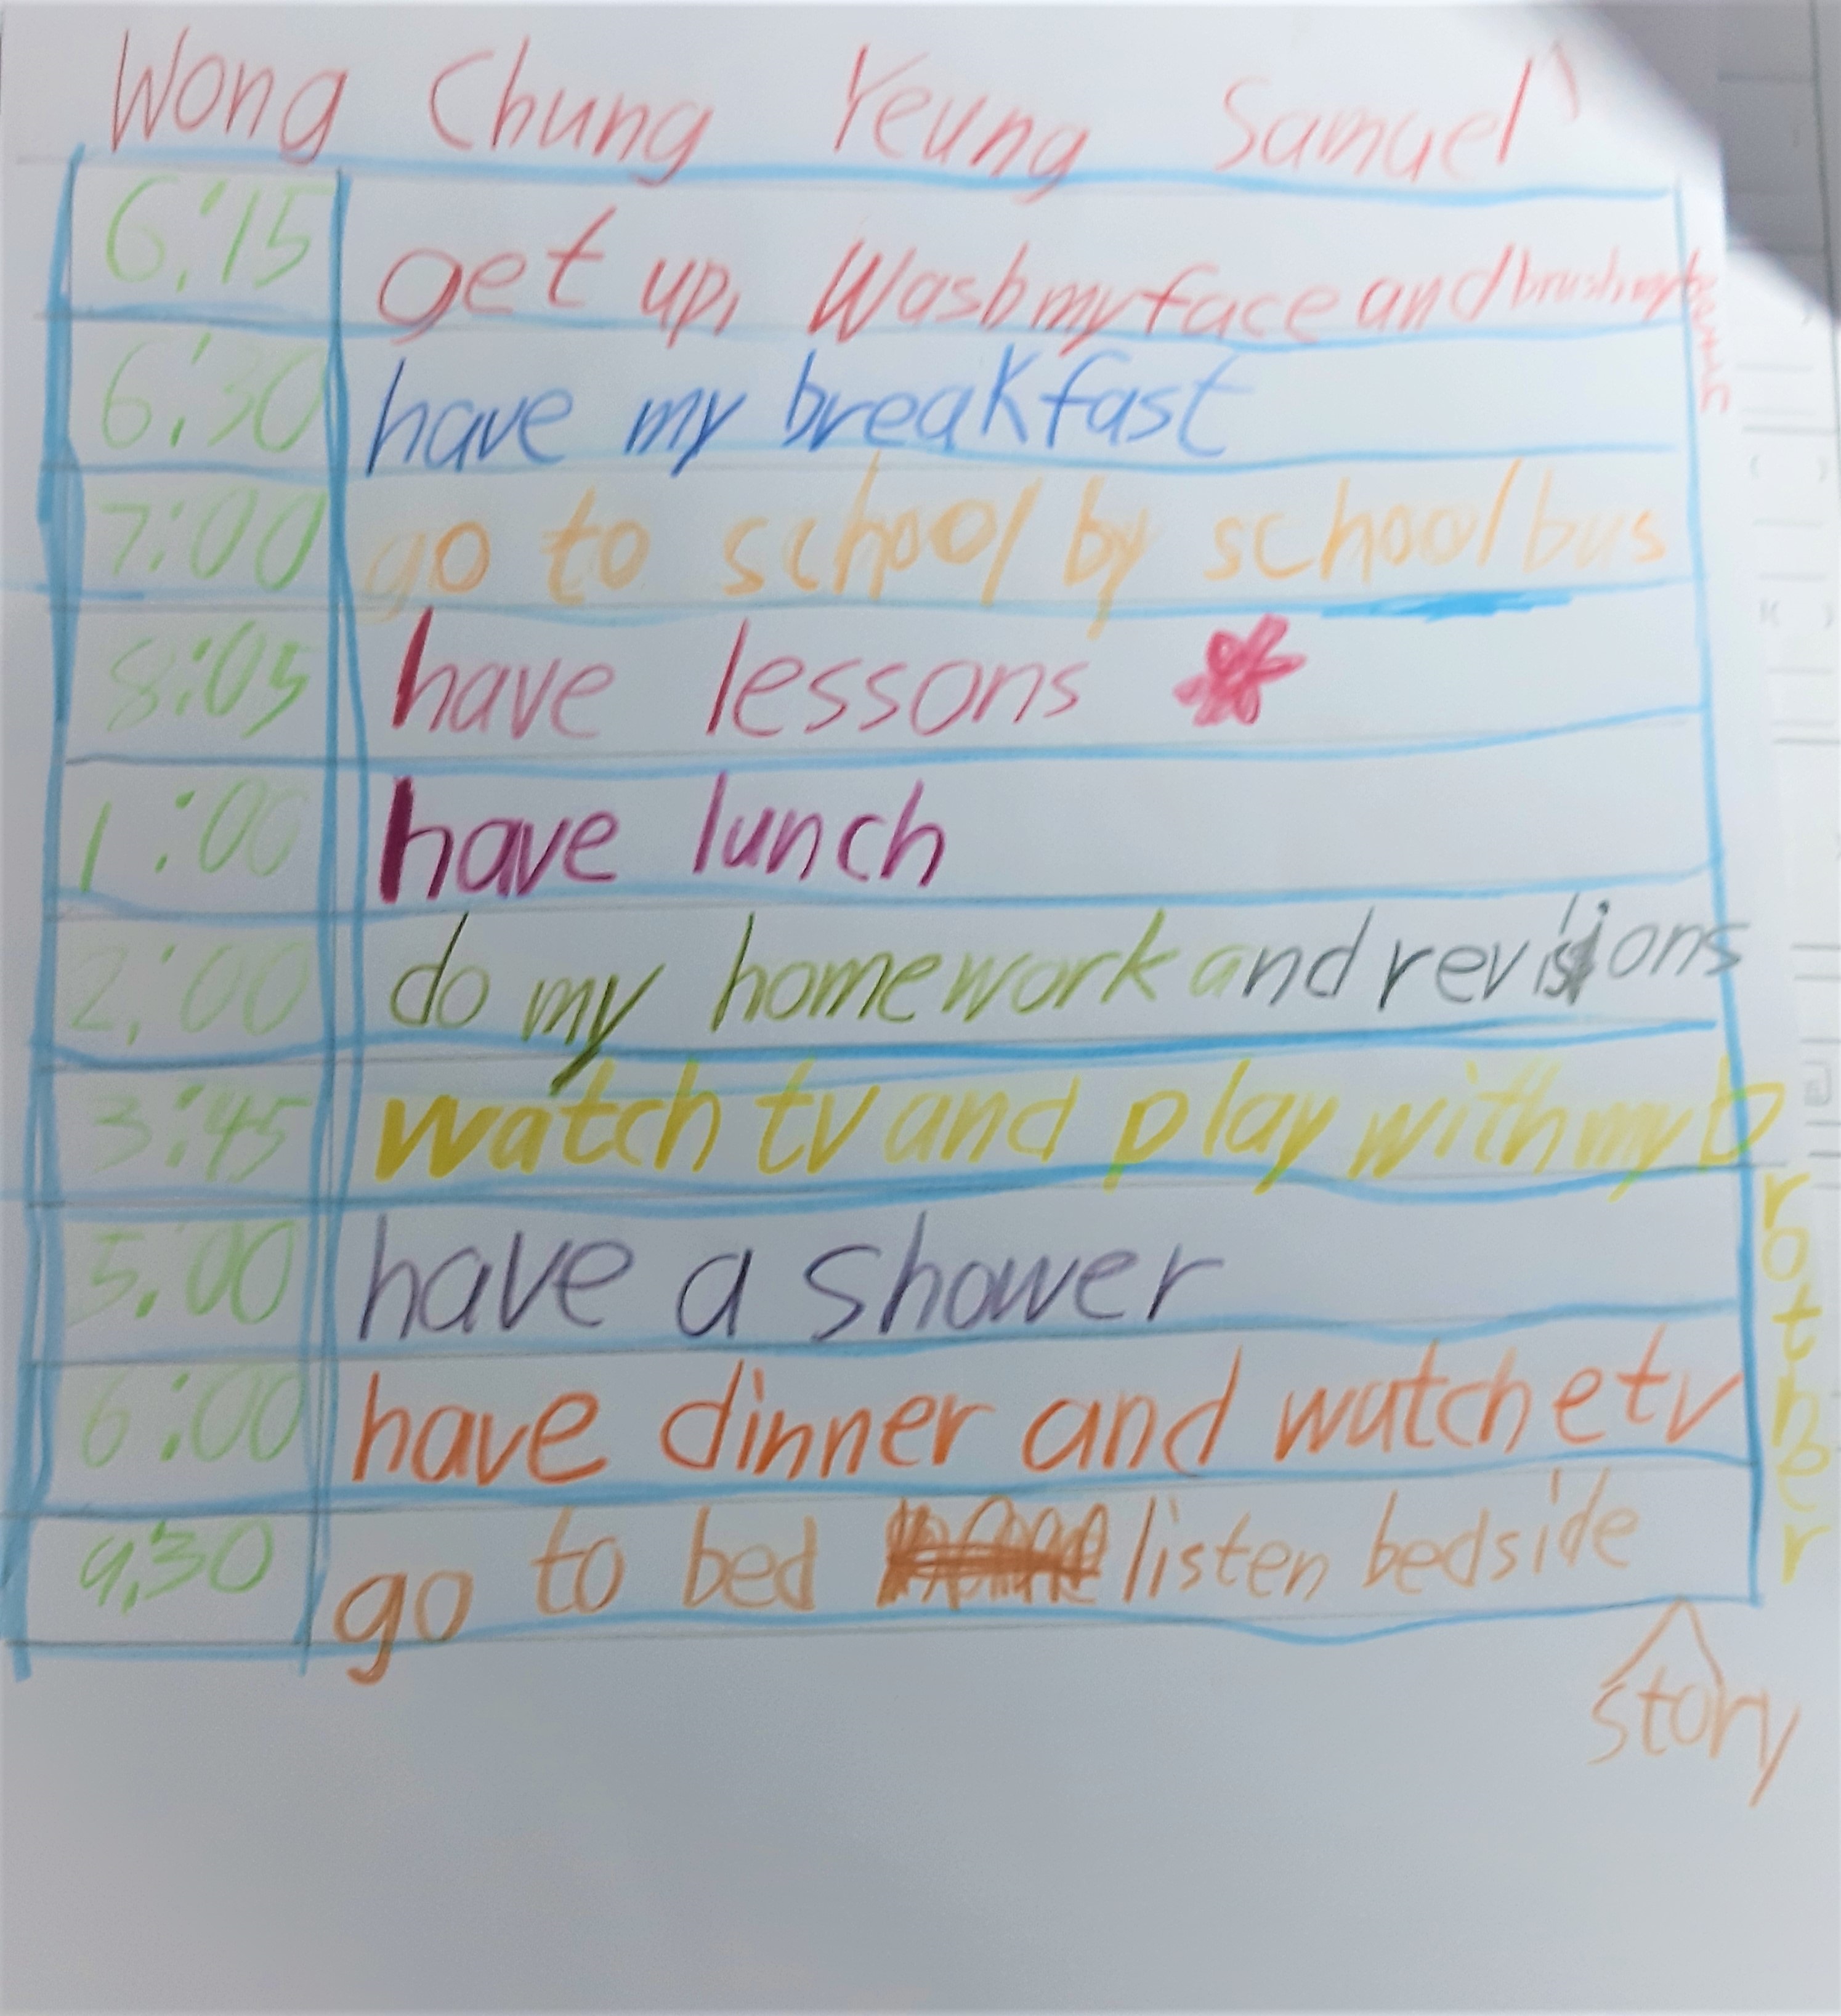 Wong Chung Yeung Samuel
6:15 get up, Wash my face and brush my teeth
6:30 have my breakfast
7:00 go to school by school bus
8:05 have lessons
1:00 have lunch
2:00 do my homework and revisions
3:45 watch tv and play with my brother
5:00 have a shower
6:00 have dinner and watche tv
9:30 go to bed listen bedside story